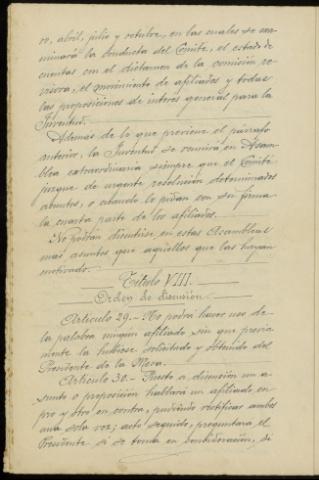 ro, abril, julio y octubre, en las cuales se exa-
minará la conducta del Comité, el estado de
cuentas con el dictamen de la comisión re-
visora, el movimiento de afiliados y todas
las proposiciones de interés general para la
Juventud.
Además de lo que previene el párrafo
anterior, la Juventud se reunirá en Asam-
blea extraordinaria siempre que el Comité
juzgue de urgente resolución determinados
asuntos, o cuando lo pidan con su firma
la cuarta parte de los afiliados.
No podrán discutirse en estas Asambleas
más asuntos que aquellos que las hayan
motivado.
Título VIII.
Orden de discusión
Artículo 29.- No podrá hacer uso de
la palabra ningún afiliado sin que previa-
mente la hubiese solicitado y obtenido del
Presidente de la Mesa.
Artículo 30.- Puesto a discusión un a-
sunto o proposición hablará un afiliado en
pro y otro en contra, pudiendo rectificar ambos
una sola vez; acto seguido, preguntará el
Presidente si se toma en consideración, si